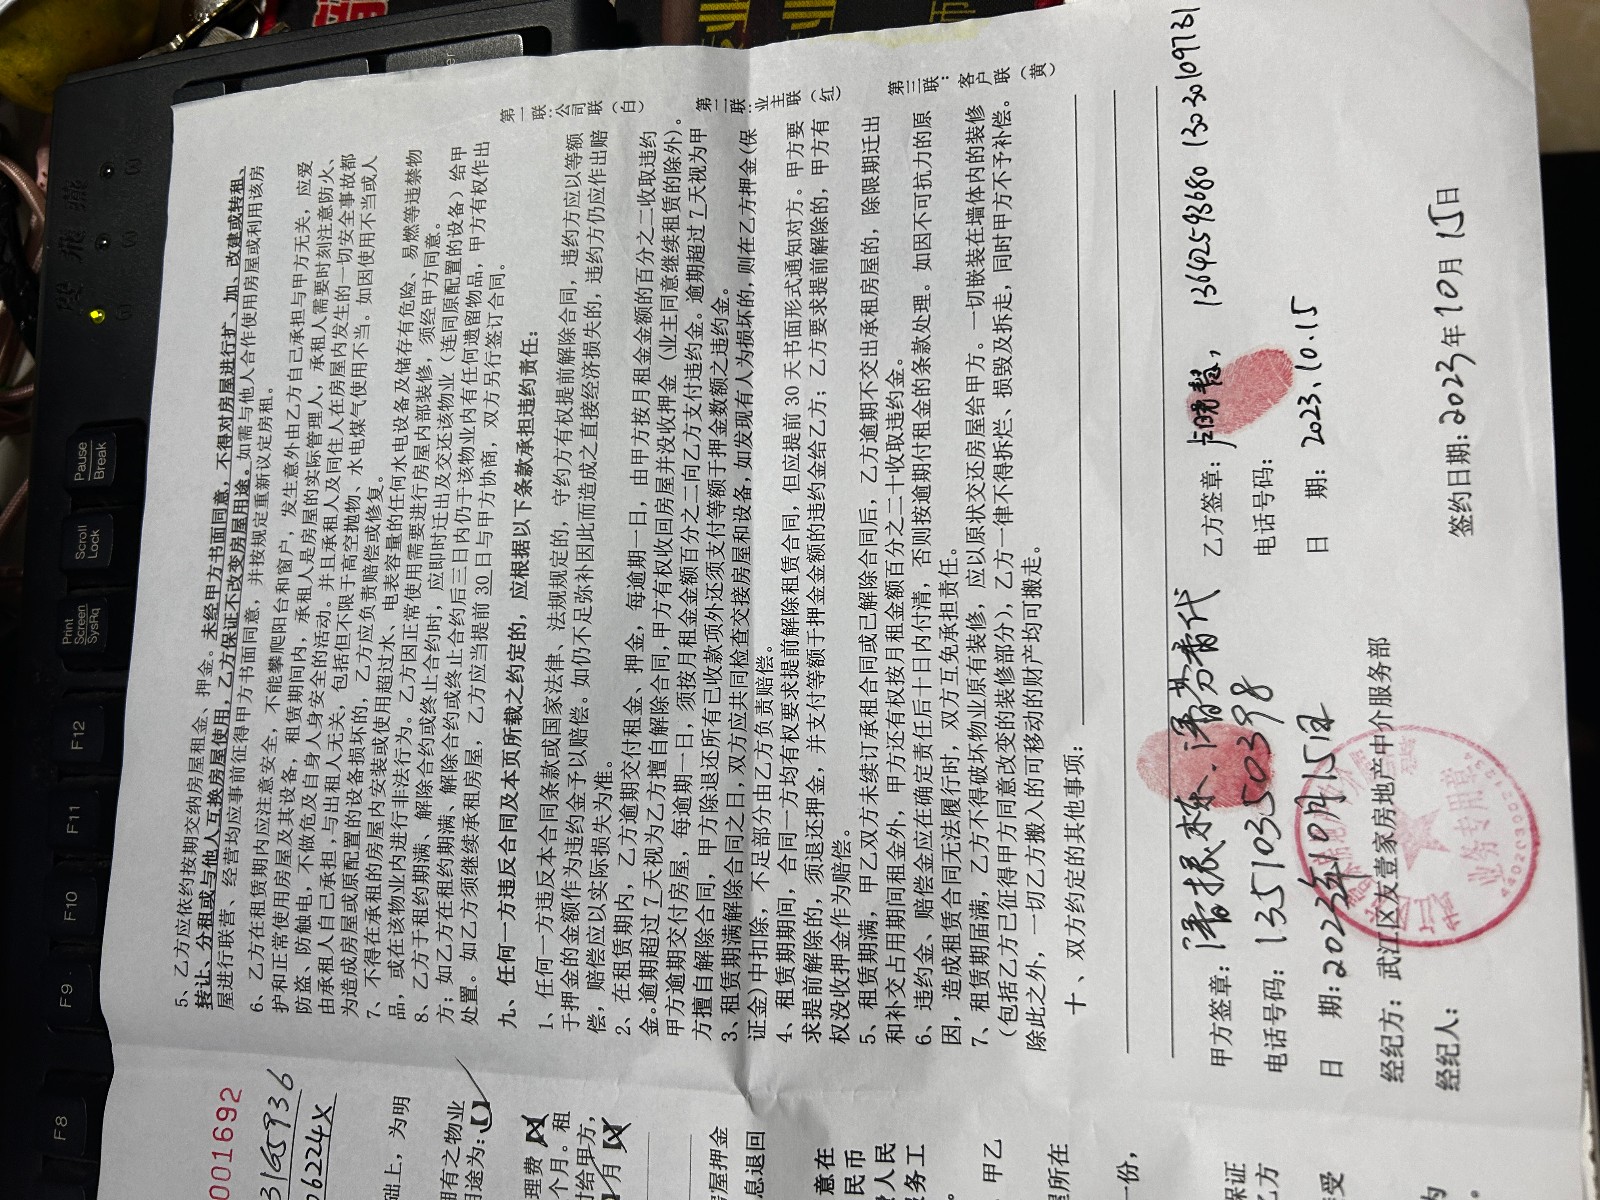 5、乙方应依约按期交纳房屋租金、押金。未经甲方书面同意，不得对房屋进行扩、加、改建或转租、
转让、分租或与他人互换房屋使用，乙方保证不改变房屋用途。如需与他人合作使用房屋或利用该房
屋进行联营、经营均应事前征得甲方书面同意，并按规定重新议定房租。
6、乙方在租赁期内应注意安全，不能攀爬阳台和窗户，发生意外由乙方自己承担与甲方无关，应爱
护和正常使用房屋及其设备，租赁期间内，承租人是房屋的实际管理人，承租人需要时刻注意防火、
防盗、防触电，不做危及自身人身安全的活动。并且承租人及同住人在房屋内发生的一切安全事故都
由承租人自己承担，与出租人无关，包括但不限于高空抛物、水电煤气使用不当。如因使用不当或人
为造成房屋或原配置的设备损坏的，乙方应负责赔偿或修复。
7、不得在承租的房屋内安装或使用超过水、电表容量的任何水电设备及储存有危险、易燃等违禁物
品，或在该物业内进行非法行为。乙方因正常使用需要进行房屋内部装修，须经甲方同意。
8、乙方于租约期满、解除合约或终止合约时，应即时迁出及交还该物业（连同原配置的设备）给甲
方；如乙方在租约期满、解除合约或终止合约后三日内仍于该物业内有任何遗留物品，甲方有权作出
处置。如乙方须继续承租房屋，乙方应当提前30日与甲方协商，双方另行签订合同。
九、任何一方违反合同及本页所载之约定的，应根据以下条款承担违约责任：
1、任何一方违反本合同条款或国家法律、法规规定的，守约方有权提前解除合同，违约方应以等额
于押金的金额作为违约金予以赔偿。如仍不足弥补因此而造成之直接经济损失的，违约方仍应作出赔
偿，赔偿应以实际损失为准。
2、在租赁期内，乙方逾期交付租金、押金，每逾期一日，由甲方按月租金金额的百分之二收取违约
金。逾期超过7天视为乙方擅自解除合同，甲方有权收回房屋并没收押金（业主同意继续租赁的除外）。
甲方逾期交付房屋，每逾期一日，须按月租金金额百分之二向乙方支付违约金。逾期超过7天视为甲
方擅自解除合同，甲方除退还所有已收款项外还须支付等额于押金数额之违约金。
3、租赁期满解除合同之日，双方应共同检查交接房屋和设备，如发现有人为损坏的，则在乙方押金（保
证金）中扣除，不足部分由乙方负责赔偿。
4、租赁期期间，合同一方均有权要求提前解除租赁合同，但应提前30天书面形式通知对方。甲方要
求提前解除的，须退还押金，并支付等额于押金金额的违约金给乙方；乙方要求提前解除的，甲方有
权没收押金作为赔偿。
5、租赁期满，甲乙双方未续订承租合同或已解除合同后，乙方逾期不交出承租房屋的，除限期迁出
和补交占用期间租金外，甲方还有权按月租金额百分之二十收取违约金。
6、违约金、赔偿金应在确定责任后十日内付清，否则按逾期付租金的条款处理。如因不可抗力的原
因，造成租赁合同无法履行时，双方互免承担责任。
7、租赁期届满，乙方不得破坏物业原有装修，应以原状交还房屋给甲方。一切嵌装在墙体内的装修
（包括乙方已征得甲方同意改变的装修部分），乙方一律不得拆烂、损毁及拆走，同时甲方不予补偿。
除此之外，一切乙方搬入的可移动的财产均可搬走。
十、双方约定的其他事项：
甲方签章：潘振栋.潘芬香代
电话号码：13510350398
日 期：2023年10月15日
经纪方：武江区友壹家房地产中介服务部
经纪人：
乙方签章：卢晓智， 13642593680 13030109731
电话号码：
日 期：2023.10.15
签约日期：2023年10月15日
第一联：公司联（白）
第二联：业主联（红）
第三联：客户联（黄）
业务专用章
001692
3165936
06224X
础上，为明
用有之物业
用途为：
理费
个月。租
付给甲方，
月
房屋押金
息退回
意在
民币
人民
务工
甲乙
屋所在
一份，
保证
乙方
受
为
Print Screen SysRq
Scroll Lock
Pause Break
F8
F9
F10
F11
F12